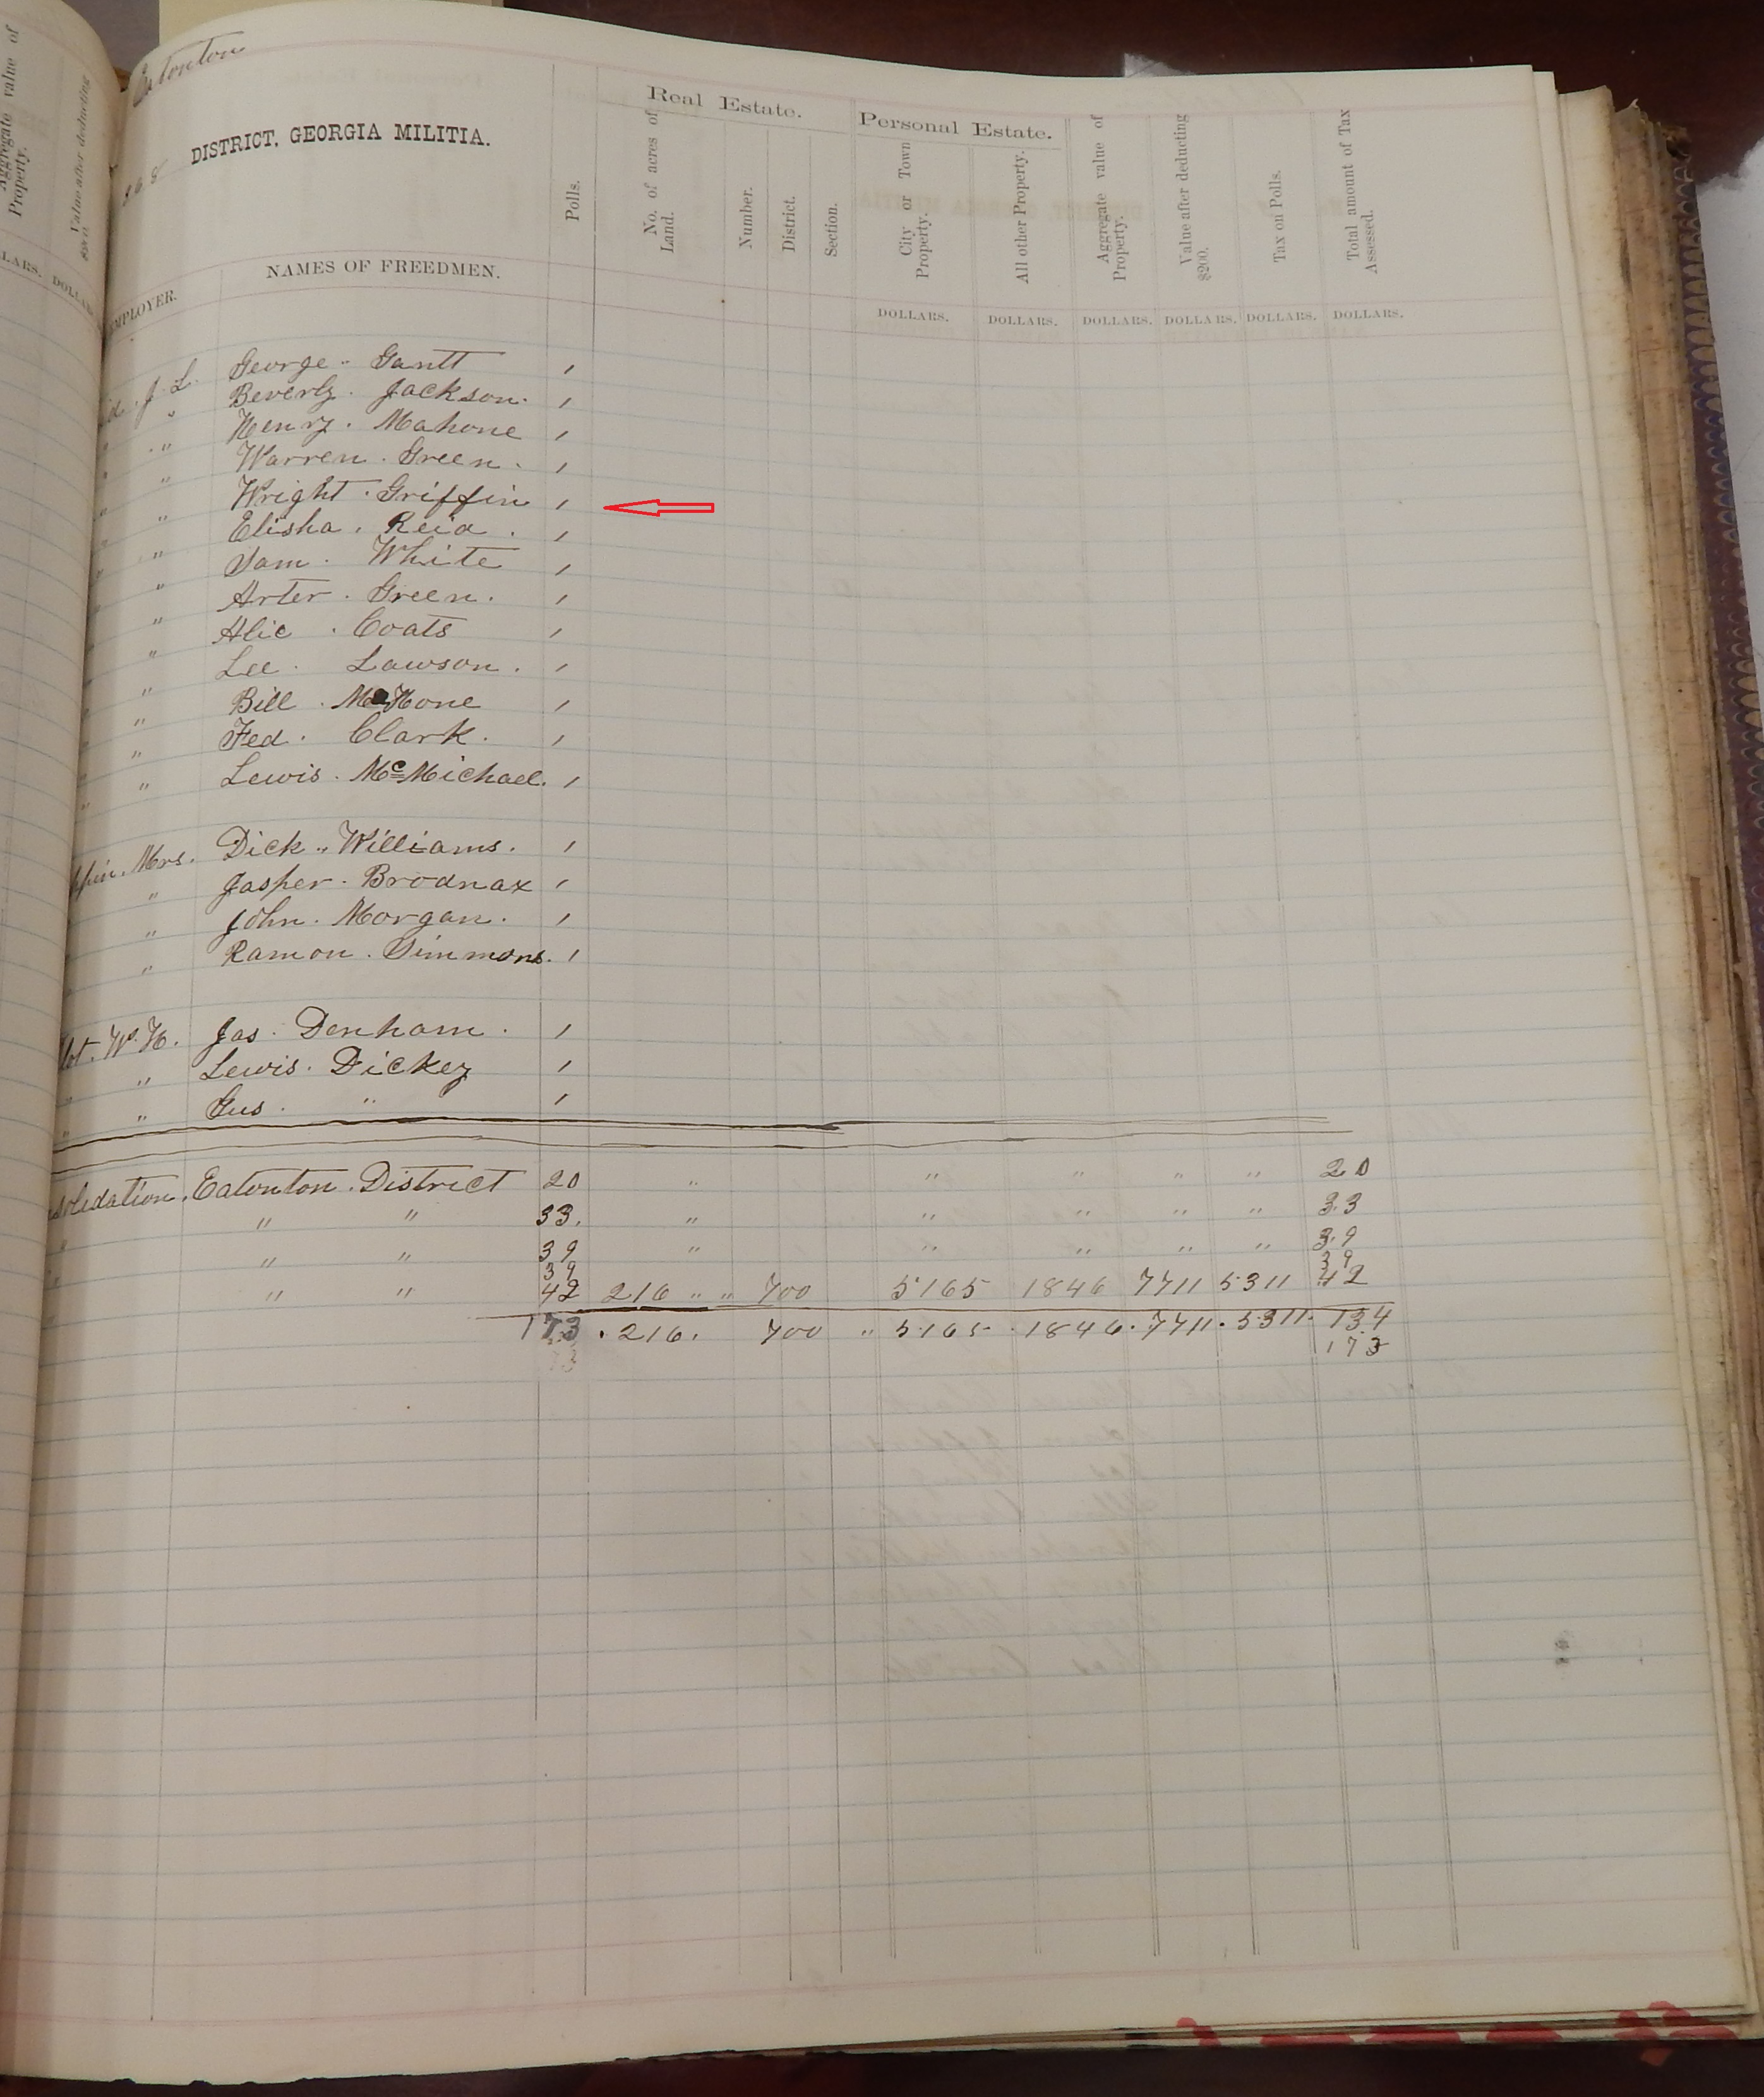 Aggregate value of Property.
Value after deducting $200.
DOLLARS.
Eatonton
368 DISTRICT, GEORGIA MILITIA.
EMPLOYER.
NAMES OF FREEDMEN.
Polls.
Real Estate.
No. of acres of Land.
Number.
District.
Section.
Personal Estate.
City or Town Property.
All other Property.
Aggregate value of Property.
Value after deducting $200.
Tax on Polls.
Total amount of Tax Assessed.
DOLLARS. DOLLARS. DOLLARS. DOLLARS. DOLLARS. DOLLARS.
J. L. George Gantt 1
" Beverly Jackson. 1
" Henry. Mahone 1
" Warren. Green. 1
" Wright. Griffin 1
" Elisha. Reid. 1
" Sam. White 1
" Arter. Green. 1
" Alic. Coats 1
" Lee. Lawson. 1
" Bill. MaHone 1
" Fed. Clark. 1
" Lewis. McMichael. 1
Mrs. Dick. Williams. 1
" Jasper. Brodnax 1
" John. Morgan. 1
" Ramon. Simmons. 1
W. H. Jas. Denham. 1
" Lewis. Dickey 1
" Gus. " 1
solidation. Eatonton. District 20 " " " " " 20
" " 33. " " " " " 33
" " 39 " " " " " 39
39 39
" " 42 216 " " 700 5165 1846 7711 5311 42
173 . 216. 700 " 5165 . 1846. 7711. 5311. 134
173